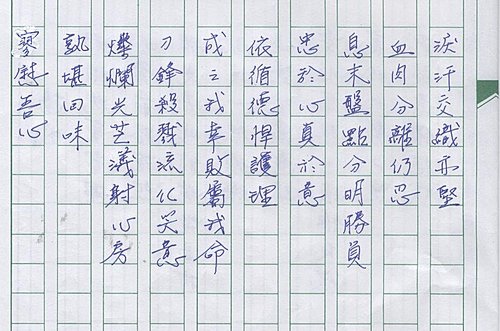 淚汗交織亦堅
血肉分離仍忍
息末盤點分明勝員
忠於心真於意
依循德悍護理
成之我幸敗屬我命
刀鋒殺戮流化笑意
燦爛光芒射心房
孰堪回味
寥慰吾心